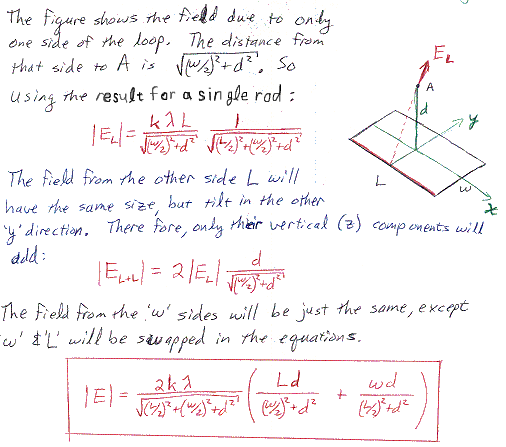 The figure shows the field due to only
one side of the loop. The distance from
that side to A is √((w/2)²+d²). So
using the result for a single rod:
|E_L| = kλL / √((w/2)²+d²) · 1 / √((L/2)²+(w/2)²+d²)
E_L
A
d
y
L
w
x
The field from the other side L will
have the same size, but tilt in the other
'y' direction. There fore, only their vertical (z) components will
add:
|E_L+L| = 2|E_L| d / √((w/2)²+d²)
The field from the 'w' sides will be just the same, except
'w' & 'L' will be swapped in the equations.
|E| = 2kλ / √((L/2)²+(w/2)²+d²) ( Ld / ((w/2)²+d²) + wd / ((L/2)²+d²) )